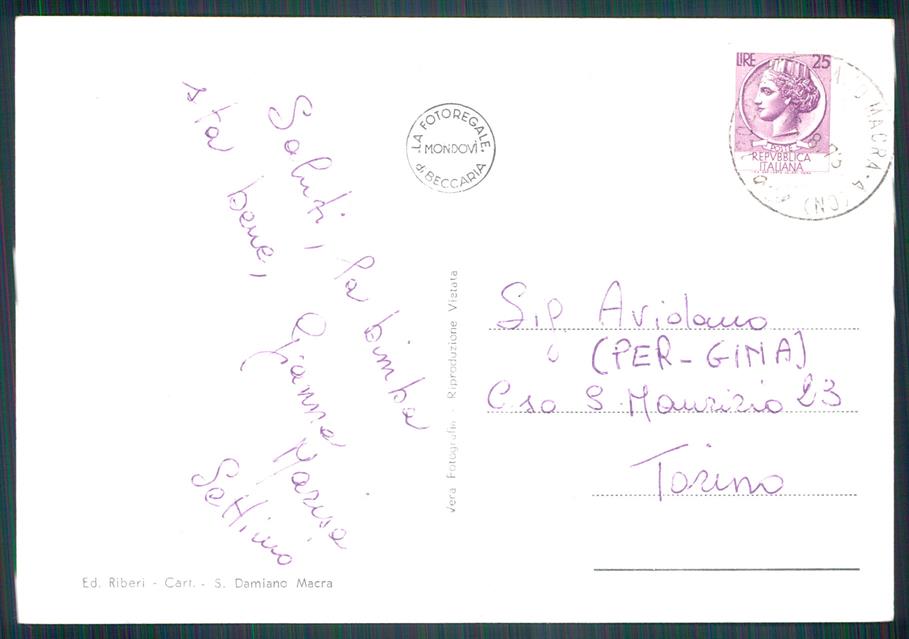 Saluti, la bimba
sta bene,
Gianna Marisa
Settimo
LA FOTOREGALE
MONDOVÌ
di BECCARIA
LIRE 25
POSTE
REPVBBLICA
ITALIANA
MACRA - (CN)
Vera Fotografia - Riproduzione Vietata
Sig. Aviolano
(PER-GINA)
C so S. Maurizio 23
Torino
Ed. Riberi - Cart. - S. Damiano Macra